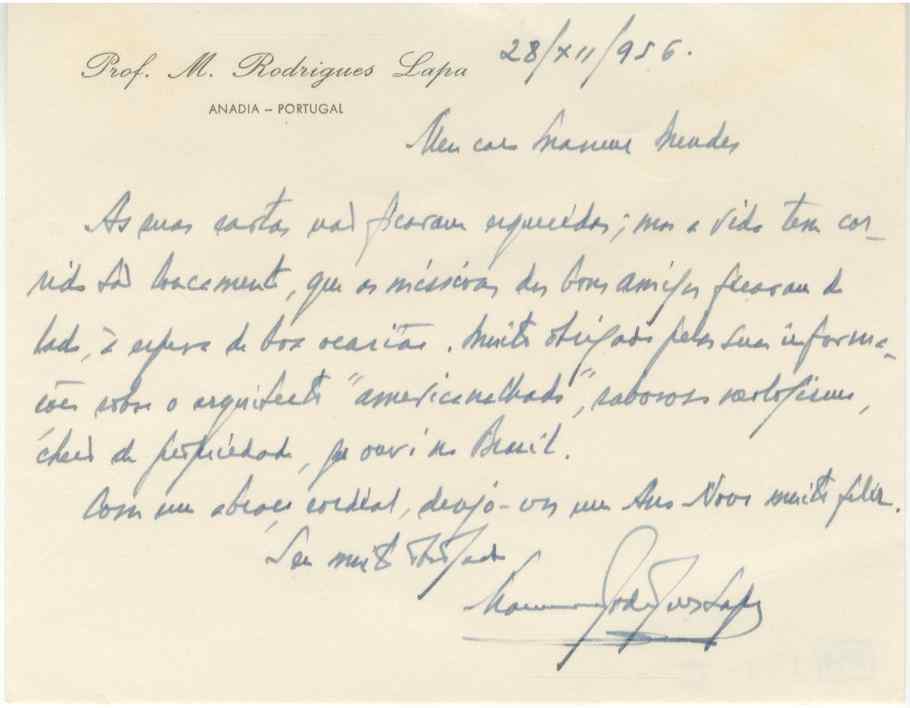 Prof. M. Rodrigues Lapa
28/XII/956.
ANADIA – PORTUGAL
Meu caro Manuel Mendes
As suas cartas não ficaram esquecidas; mas a vida tem cor-
rido tão loucamente, que as missivas dos bons amigos ficaram de
lado, à espera de boa ocasião. Muito obrigado pelas suas informa-
ções sobre o arquitecto "americanalhado", saboroso neologismo,
cheio de propriedade, que ouvi no Brasil.
Com um abraço cordial, desejo-vos um Ano Novo muito feliz.
Seu muito obrigado
Manuel Rodrigues Lapa